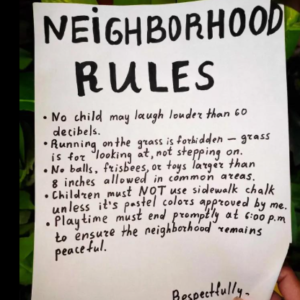 NEIGHBORHOOD
RULES
• No child may laugh louder than 60
decibels.
• Running on the grass is forbidden – grass
is for looking at, not stepping on.
• No balls, frisbees, or toys larger than
8 inches allowed in common areas.
• Children must NOT use sidewalk chalk
unless it's pastel colors approved by me.
• Playtime must end promptly at 6:00 p.m
to ensure the neighborhood remains
peaceful.
Respectfully-